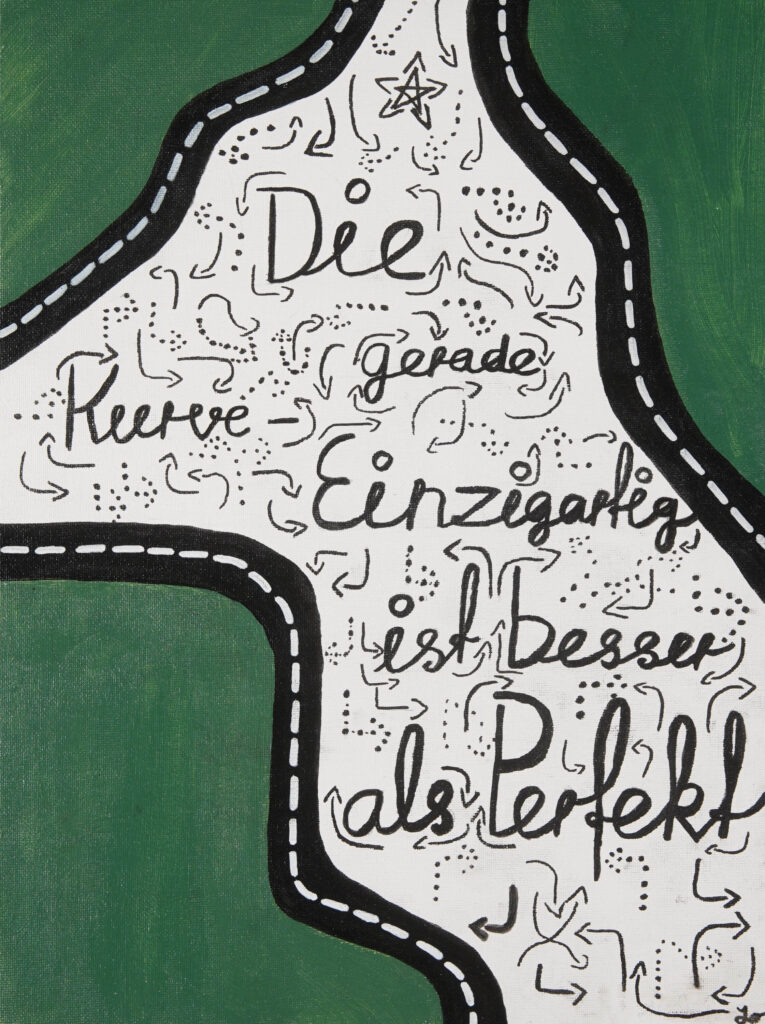 Die
gerade
Kurve –
Einzigartig
ist besser
als Perfekt